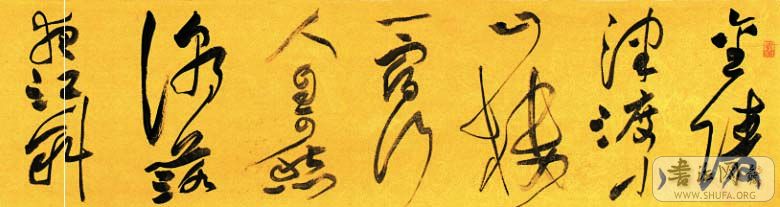 金陵
津渡小
山樓
一宿行
人自可愁
潮落
夜江斜
书法网
WWW.SHUFA.ORG